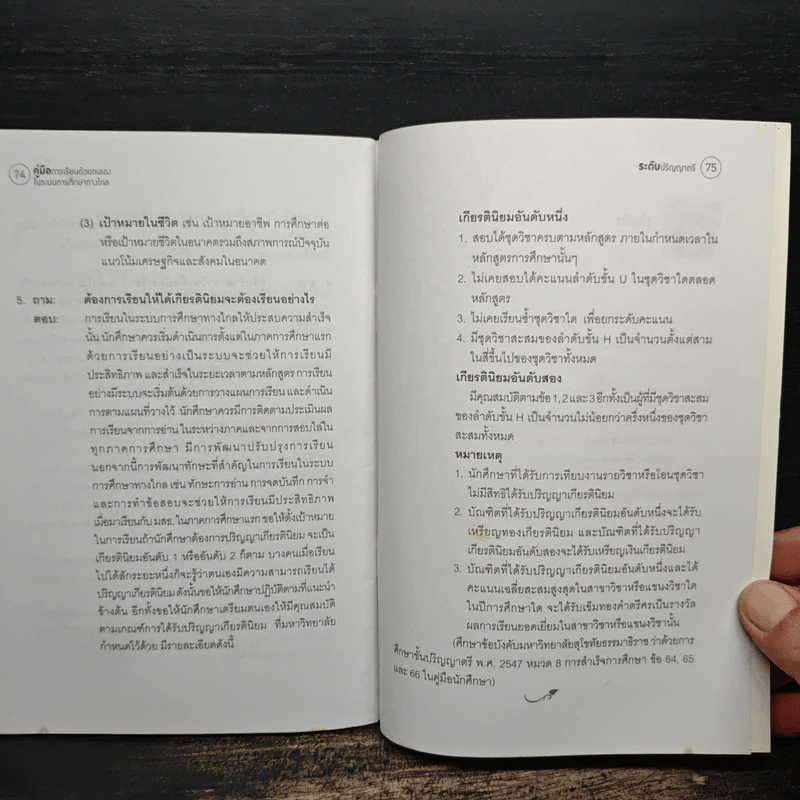 74 คู่มือการเรียนด้วยตนเอง
ในระบบการศึกษาทางไกล
(3) เป้าหมายในชีวิต เช่น เป้าหมายอาชีพ การศึกษาต่อ
หรือเป้าหมายชีวิตในอนาคตรวมถึงสภาพการณ์ปัจจุบัน
แนวโน้มเศรษฐกิจและสังคมในอนาคต
5. ถาม: ต้องการเรียนให้ได้เกียรตินิยมจะต้องเรียนอย่างไร
ตอบ: การเรียนในระบบการศึกษาทางไกลให้ประสบความสำเร็จ
นั้น นักศึกษาควรเริ่มดำเนินการตั้งแต่ในภาคการศึกษาแรก
ด้วยการเรียนอย่างเป็นระบบจะช่วยให้การเรียนมี
ประสิทธิภาพ และสำเร็จในระยะเวลาตามหลักสูตร การเรียน
อย่างมีระบบจะเริ่มต้นด้วยการวางแผนการเรียน และดำเนิน
การตามแผนที่วางไว้ นักศึกษาควรมีการติดตามประเมินผล
การเรียนจากการอ่าน ในระหว่างภาคและจากการสอบไล่ใน
ทุกภาคการศึกษา มีการพัฒนาปรับปรุงการเรียน
นอกจากนี้การพัฒนาทักษะที่สำคัญในการเรียนในระบบ
การศึกษาทางไกล เช่น ทักษะการอ่าน การจดบันทึก การจำ
และการทำข้อสอบจะช่วยให้การเรียนมีประสิทธิภาพ
เมื่อมาเรียนกับ มสธ. ในภาคการศึกษาแรก ขอให้ตั้งเป้าหมาย
ในการเรียนถ้านักศึกษาต้องการปริญญาเกียรตินิยม จะเป็น
เกียรตินิยมอันดับ 1 หรืออันดับ 2 ก็ตาม บางคนเมื่อเรียน
ไปได้สักระยะหนึ่งก็จะรู้ว่าตนเองมีความสามารถเรียนได้
ปริญญาเกียรตินิยม ดังนั้นขอให้นักศึกษาปฏิบัติตามที่แนะนำ
ข้างต้น อีกทั้งขอให้นักศึกษาเตรียมตนเองให้มีคุณสมบัติ
ตามเกณฑ์การได้รับปริญญาเกียรตินิยม ที่มหาวิทยาลัย
กำหนดไว้ด้วย มีรายละเอียดดังนี้
ระดับปริญญาตรี 75
เกียรตินิยมอันดับหนึ่ง
1. สอบได้ชุดวิชาครบตามหลักสูตร ภายในกำหนดเวลาใน
หลักสูตรการศึกษานั้นๆ
2. ไม่เคยสอบได้คะแนนลำดับขั้น U ในชุดวิชาใดตลอด
หลักสูตร
3. ไม่เคยเรียนซ้ำชุดวิชาใด เพื่อยกระดับคะแนน
4. มีชุดวิชาสะสมของลำดับขั้น H เป็นจำนวนตั้งแต่สาม
ในสี่ขึ้นไปของชุดวิชาทั้งหมด
เกียรตินิยมอันดับสอง
มีคุณสมบัติตามข้อ 1, 2 และ 3 อีกทั้งเป็นผู้ที่มีชุดวิชาสะสม
ของลำดับขั้น H เป็นจำนวนไม่น้อยกว่าครึ่งหนึ่งของชุดวิชา
สะสมทั้งหมด
หมายเหตุ
1. นักศึกษาที่ได้รับการเทียบงานรายวิชาหรือโอนชุดวิชา
ไม่มีสิทธิได้รับปริญญาเกียรตินิยม
2. บัณฑิตที่ได้รับปริญญาเกียรตินิยมอันดับหนึ่งจะได้รับ
เหรียญทองเกียรตินิยม และบัณฑิตที่ได้รับปริญญา
เกียรตินิยมอันดับสองจะได้รับเหรียญเงินเกียรตินิยม
3. บัณฑิตที่ได้รับปริญญาเกียรตินิยมอันดับหนึ่งและได้
คะแนนเฉลี่ยสะสมสูงสุดในสาขาวิชาหรือแขนงวิชาใด
ในปีการศึกษาใด จะได้รับเข็มทองคำตรีศรเป็นรางวัล
ผลการเรียนยอดเยี่ยมในสาขาวิชาหรือแขนงวิชานั้น
(ศึกษาข้อบังคับมหาวิทยาลัยสุโขทัยธรรมาธิราช ว่าด้วยการ
ศึกษาขั้นปริญญาตรี พ.ศ. 2547 หมวด 8 การสำเร็จการศึกษา ข้อ 64, 65
และ 66 ในคู่มือนักศึกษา)